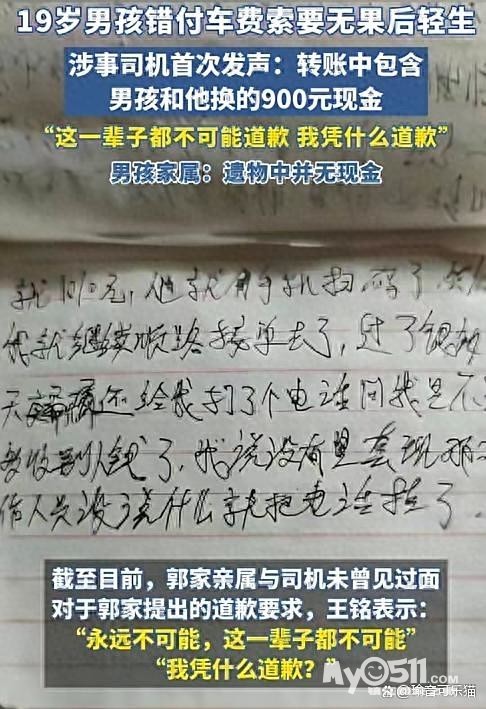 19岁男孩错付车费索要无果后轻生
涉事司机首次发声：转账中包含
男孩和他换的900元现金
“这一辈子都不可能道歉 我凭什么道歉”
男孩家属：遗物中并无现金
就 他就用手机扫码了
我就继续顺路接单去了，过了
天 还给我打了个电话问我是不
多收别人钱了，我说没有
作人员没说什么就把电话挂了．
截至目前，郭家亲属与司机未曾见过面
对于郭家提出的道歉要求，王铭表示：
“永远不可能，这一辈子都不可能”
“我凭什么道歉？”
My0511.com
@瑜音可乐猫